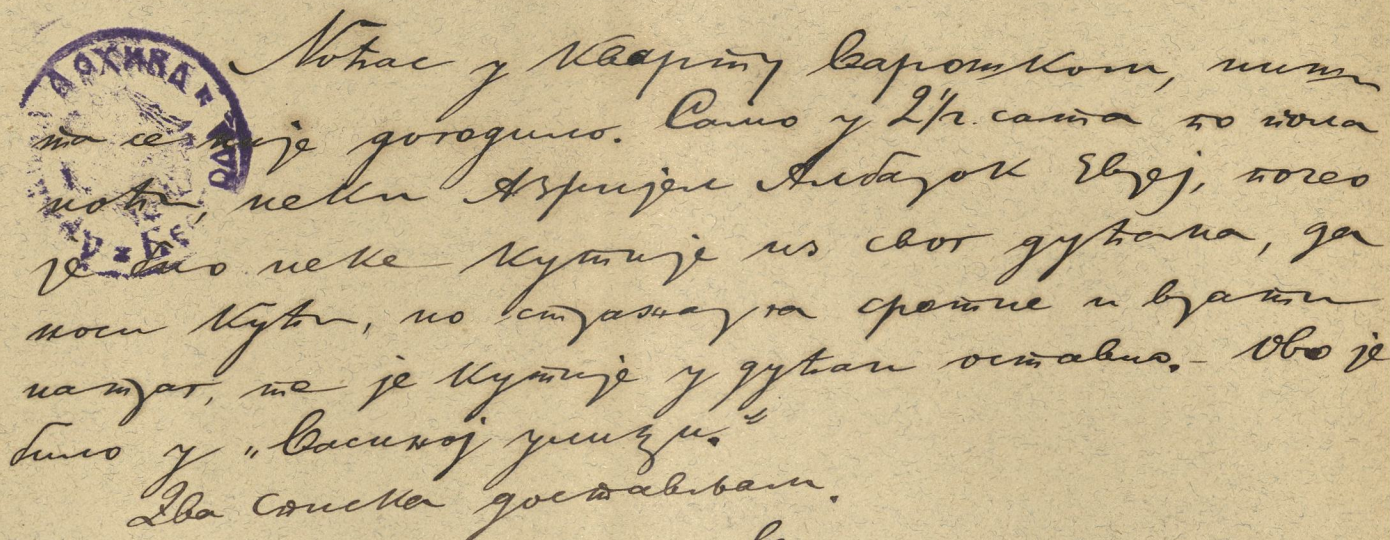 Ноћас у Кварту Варошком, ниш
та се није догодило. Само у 2½ сата по пола
ноћи, неки Азријел Албазок Евреј, почео
је био неке кутије из свог дућана, да
носи кући, но стража га сретне и врати
натраг, те је кутије у дућан оставио. – Ово је
било у „Васиној улици.“
Два списка достављам.
АРХИВА